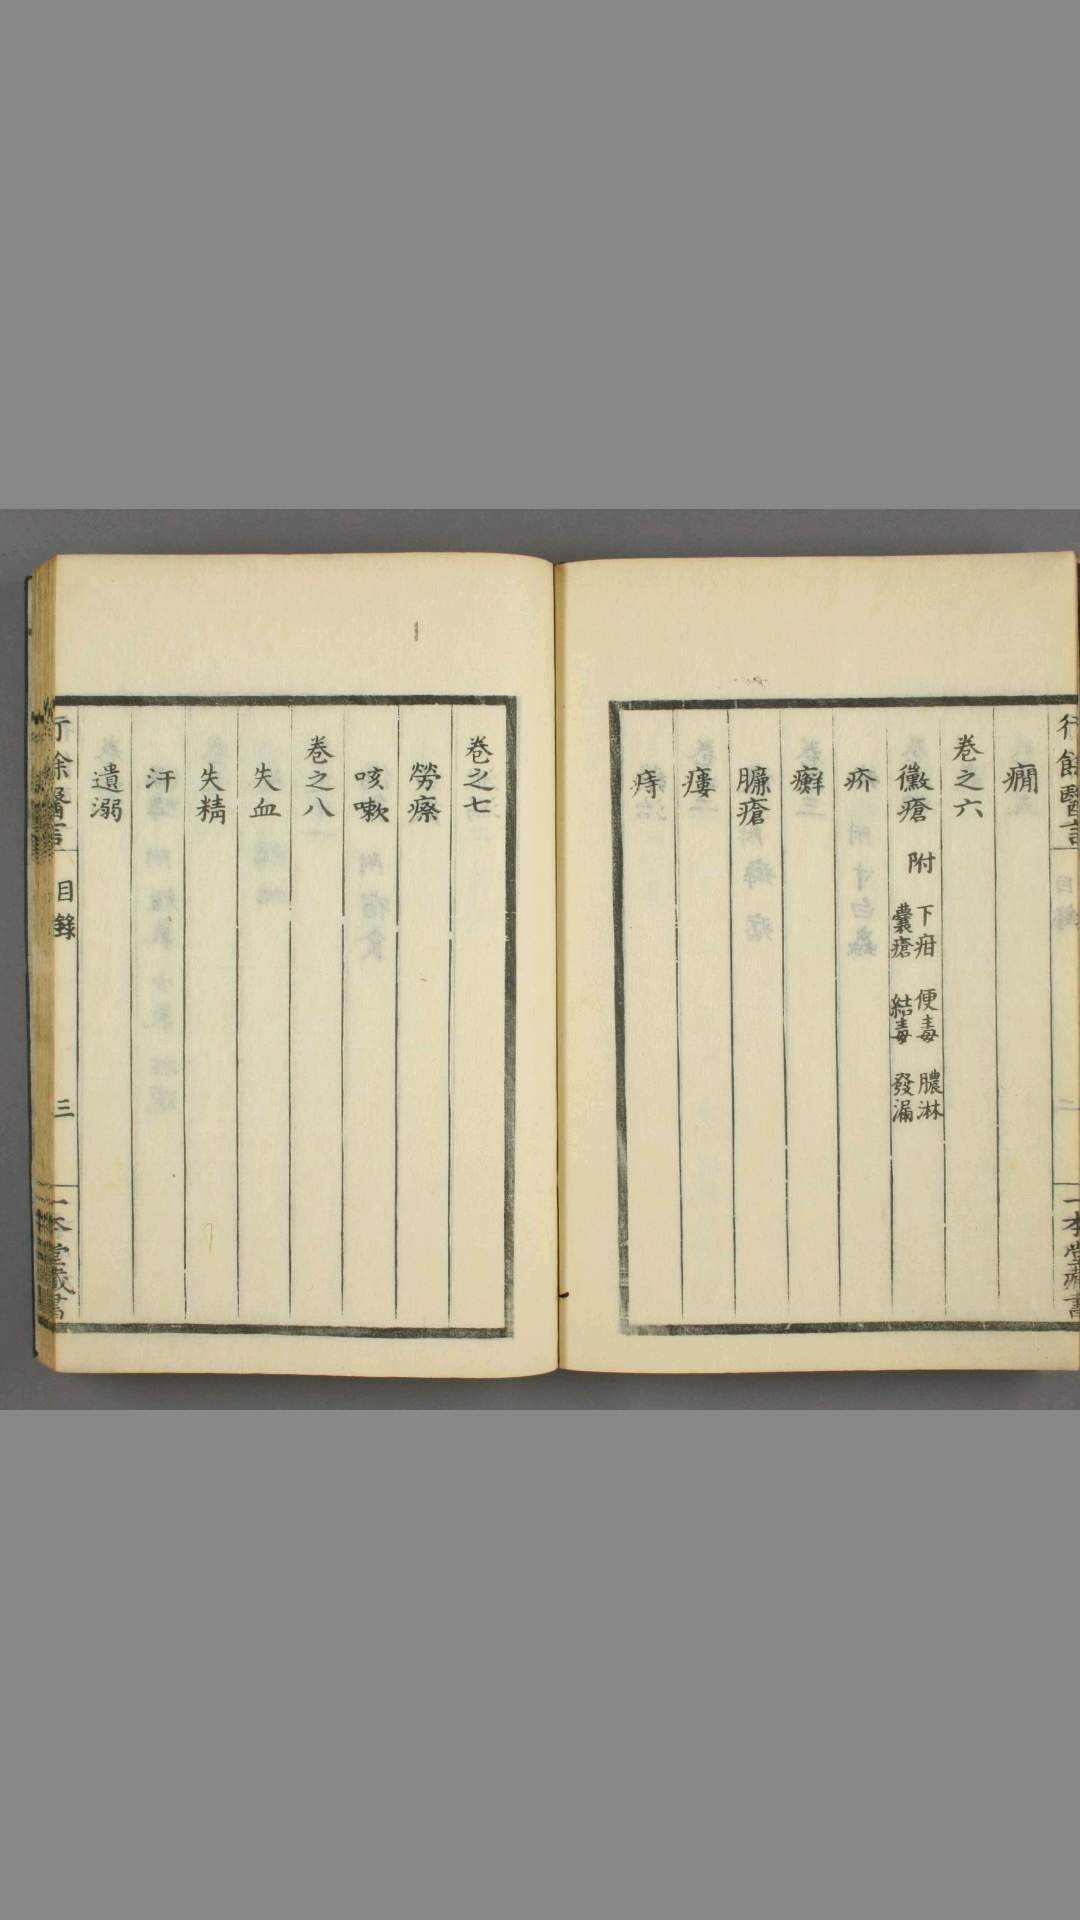 行餘醫言
目錄
二
一本堂藏書
癇
卷之六
黴瘡 附 下疳 便毒 膿淋
囊瘡 結毒 發漏
疥
癬
臁瘡
瘻
痔
卷之七
勞瘵
咳嗽
卷之八
失血
失精
汗
遺溺
行餘醫言
目錄
三
一本堂藏書